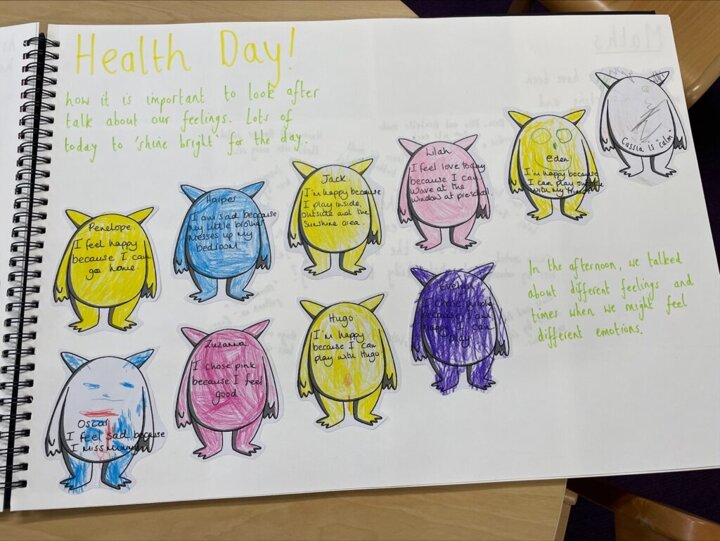 Health Day!
how it is important to look after
talk about our feelings. Lots of
today to 'shine bright' for the day.
Penelope
I feel happy
because I can
go home
Harper
I am sad because
my little brother
messes up my
bedroom
Jack
I'm happy because
I play inside,
outside and the
Sunshine area
Lilah
I feel love today
because I can
wave at the
windows at preschool
eden
I'm happy because
I can play
with my
Cassia is calm
Oscar
I feel sad because
I miss mummy
Zuzanna
I chose pink
because I feel
good
Hugo
I'm happy
because I can
play with Hugo
because I am
happy I can
play
In the afternoon, we talked
about different feelings and
times when we might feel
different emotions.